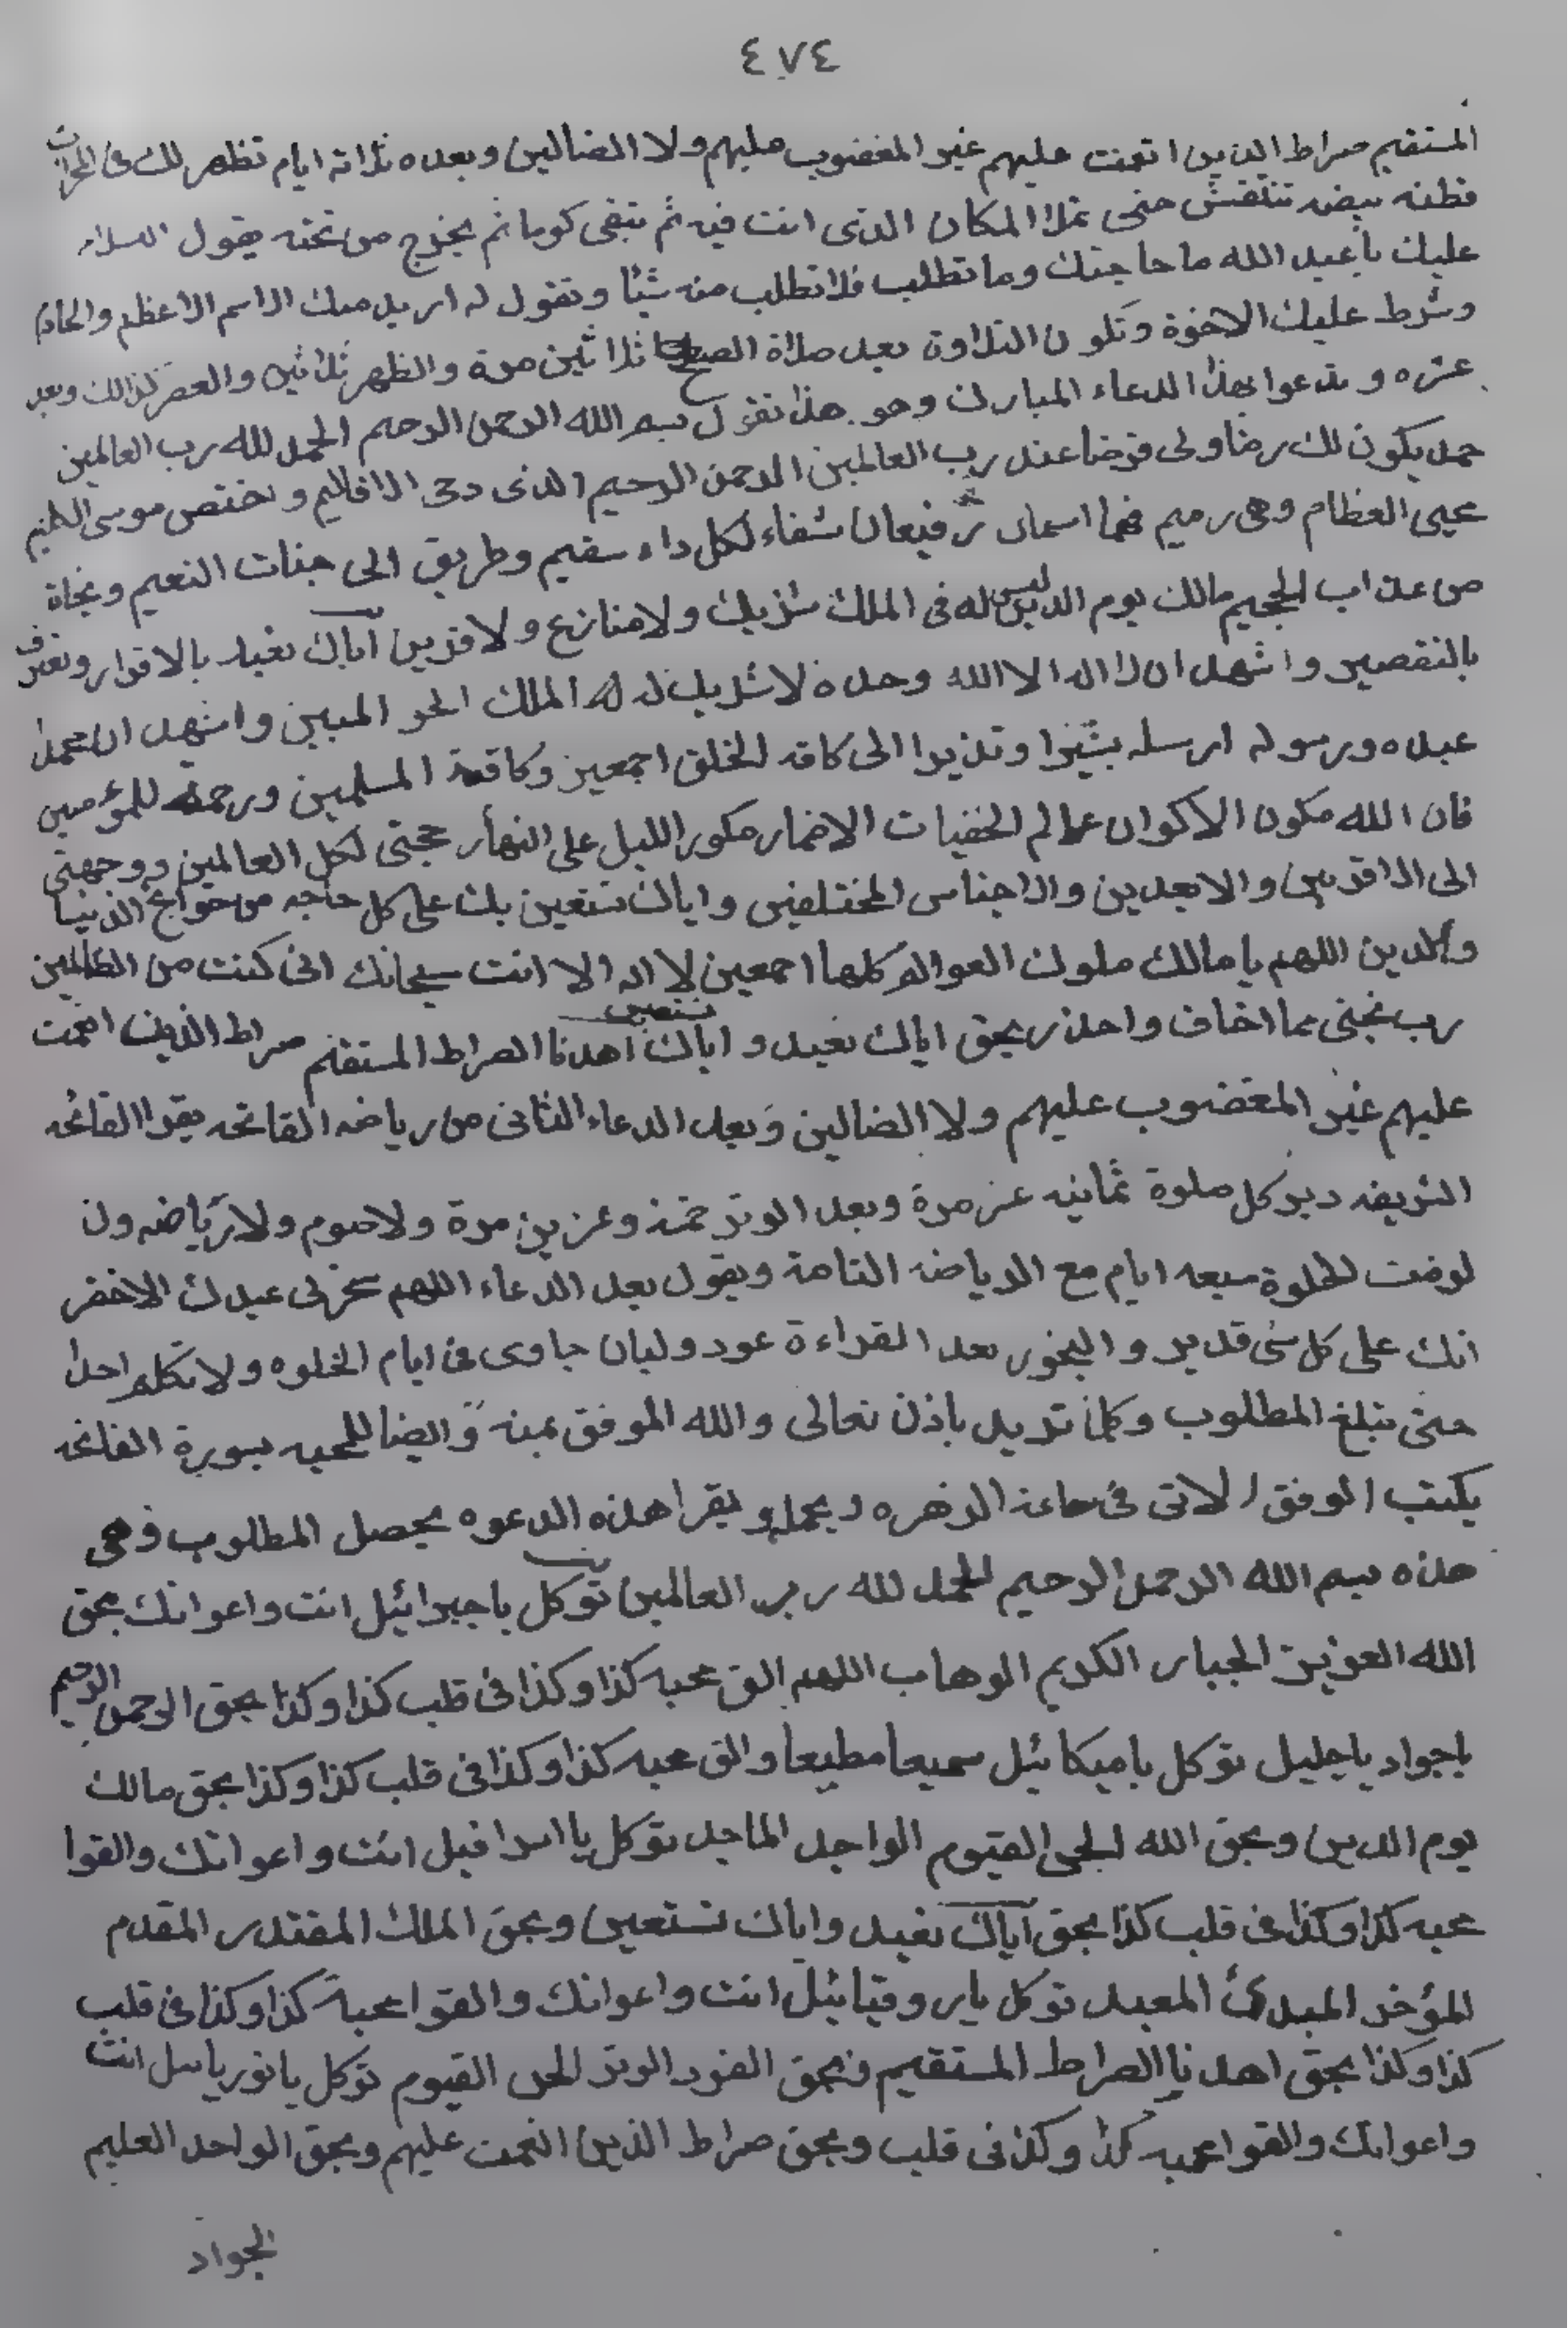 ٤٧٤
المستقيم صراط الذين انعمت عليهم غير المغضوب عليهم ولا الضالين وبعده ثلاثة ايام تظهر لك فى
قطنه بيضه تنتفش حتى تملا المكان الذى انت فيه ثم تبقى كوما ثم يخرج من تحته يقول السلام
عليك ياعبد الله ما حاجتك وما تطلب فلا تطلب منه شيئا وتقول له اريد منك الاسم الاعظم والخادم
وشرط عليك الاخوة وتكون التلاوة بعد صلاة الصبح ثلاثين مرة والظهر ثلاثين والعصر كذالك وبعد
عشره وتدعوا بهذا الدعاء المبارك وهو هذا تقول بسم الله الرحمن الرحيم الحمد لله رب العالمين
حمد يكون لك رضا ولى فرضا عند رب العالمين الرحمن الرحيم الذى دحى الاقاليم واختص موسى الكليم
محيى العظام وهى رميم فهما اسمان رفيعان شفاء لكل داء سقيم وطريق الى جنات النعيم ونجاة
من عذاب الجحيم مالك يوم الدين ليس له فى الملك شريك ولا منازع ولا قرين اياك نعبد بالاقرار ونعترف
بالتقصير واشهد ان لا اله الا الله وحده لا شريك له له الملك الحق المبين واشهد ان محمدا
عبده ورسوله ارسله بشيرا ونذيرا الى كافه الخلق اجمعين وكافة المسلمين ورحمة للمؤمنين
فان الله مكون الاكوان عالم الخفيات الاضمار مكور الليل على النهار حجتى لكل العالمين ووجهتى
الى الاقربين والابعدين والاجناس المختلفين واياك نستعين بك على كل حاجه من حوايج الدنيا
والدين اللهم يا مالك ملوك العوالم كلها اجمعين لا اله الا انت سبحانك انى كنت من الظالمين
رب نجنى مما اخاف واحذر بحق اياك نعبد واياك نستعين اهدنا الصراط المستقيم صراط الذين انعمت
عليهم غير المغضوب عليهم ولا الضالين وبعد الدعاء الثانى من رياضه الفاتحه يقرا الفاتحه
الشريفه دبر كل صلوة ثمانيه عشر مرة وبعد الوتر خمسة وعشرين مرة ولا صوم ولا رياضه ون
لوضت لخلوة سبعه ايام مع الرياضه التامة ويقول بعد الدعاء اللهم سخر لى عبدك الاخضر
انك على كل شى قدير والبخور بعد القراءة عود ولبان جاوى فى ايام الخلوه ولا تكلم احدا
حتى تبلغ المطلوب وكلما تريد باذن تعالى والله الموفق بمنه وايضا للمحبه بسورة الفاتحه
يكتب الوفق الاتى فى ساعة الزهره ويحمله ويقرا هذه الدعوه يحصل المطلوب وهى
هذه بسم الله الرحمن الرحيم الحمد لله رب العالمين توكل ياجبرائيل انت واعوانك بحق
الله العزيز الجبار الكريم الوهاب اللهم الق محبه كذا وكذا فى قلب كذا وكذا بحق الرحمن الرحيم
ياجواد ياجليل توكل ياميكائيل سميعا مطيعا والق محبه كذا وكذا فى قلب كذا وكذا بحق مالك
يوم الدين وبحق الله الحى القيوم الواجد الماجد توكل يا اسرافيل انت واعوانك والقوا
محبه كذا وكذا فى قلب كذا بحق اياك نعبد واياك نستعين وبحق الملك المقتدر المقدم
المؤخر المبدئ المعيد توكل ياروقيائيل انت واعوانك والقوا محبة كذا وكذا فى قلب
كذا وكذا بحق اهدنا الصراط المستقيم وبحق الفرد الوتر الحى القيوم توكل يا نورياييل انت
واعوانك والقوا محبه كذا وكذا فى قلب وبحق صراط الذين انعمت عليهم وبحق الواحد العليم
الجواد